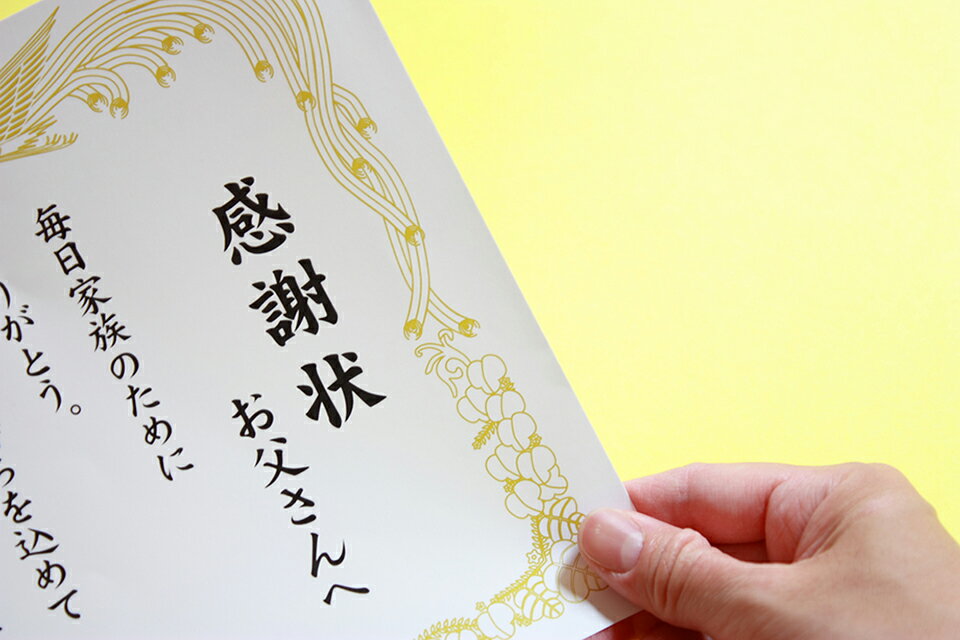 感謝状
お父さんへ
毎日家族のために
がとう。
を込めて